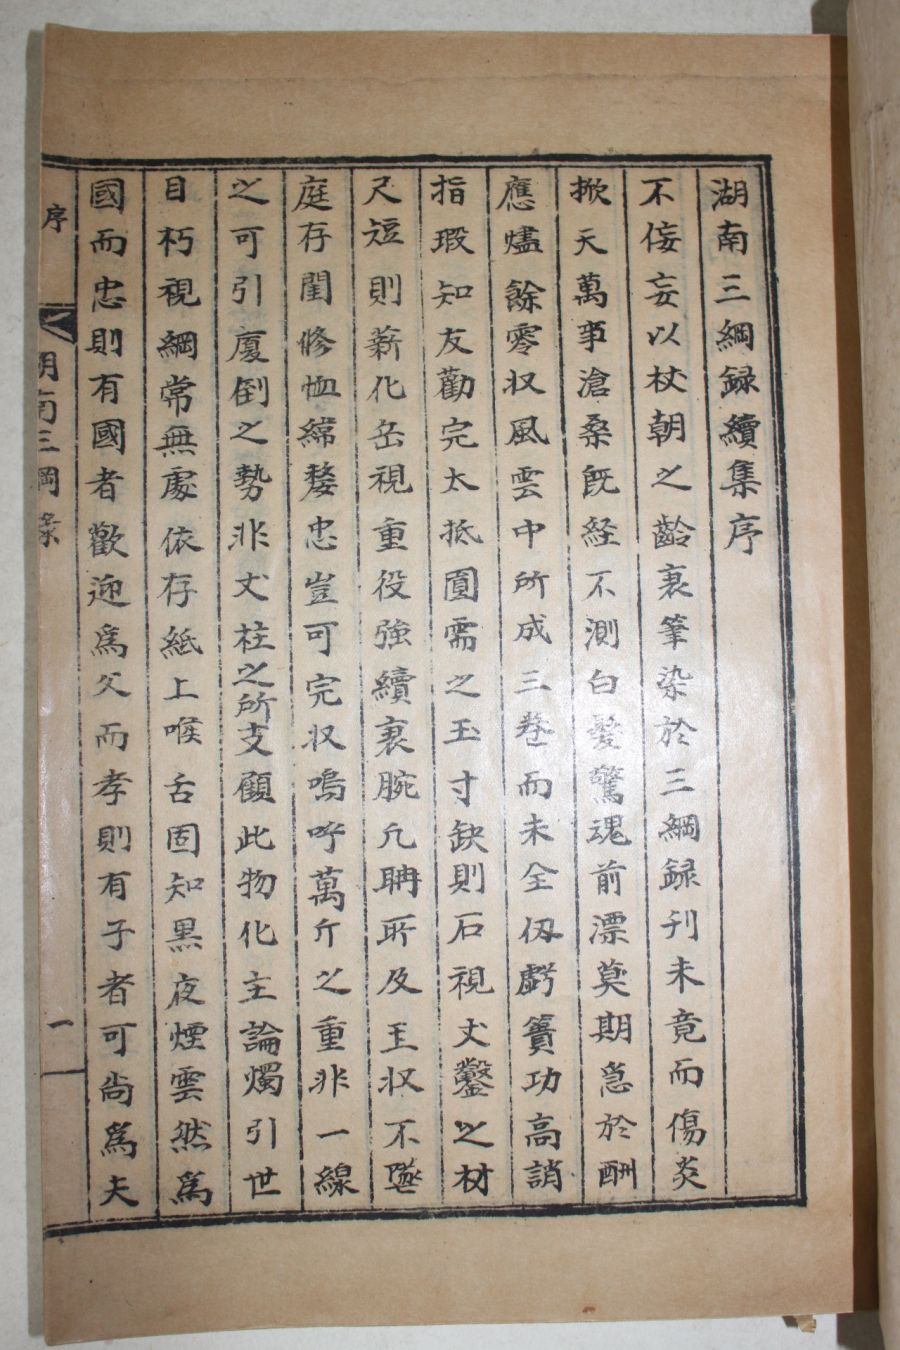 湖南三綱録續集序
不侫妄以杖朝之齡裹筆染於三綱録刋未竟而傷炎
掀天萬事滄桑旣経不測白髮驚魂前漂莫期急於酬
應燼餘零収風雲中所成三卷而未全仭虧簣功高誚
指瑕知友勸完太抵圎需之玉寸缺則石視丈鑿之材
尺短則薪化岳視重役強續裹腕凢聃所及玉収不墜
庭存閨修恤緯嫠忠豈可完収嗚呼萬斤之重非一線
之可引厦倒之勢非丈柱之所支顧此物化主論燭引世
目朽視綱常無處依存紙上喉舌固知黒夜煙雲然爲
國而忠則有國者歡迎爲父而孝則有子者可尚爲夫
序
湖南三綱录
一